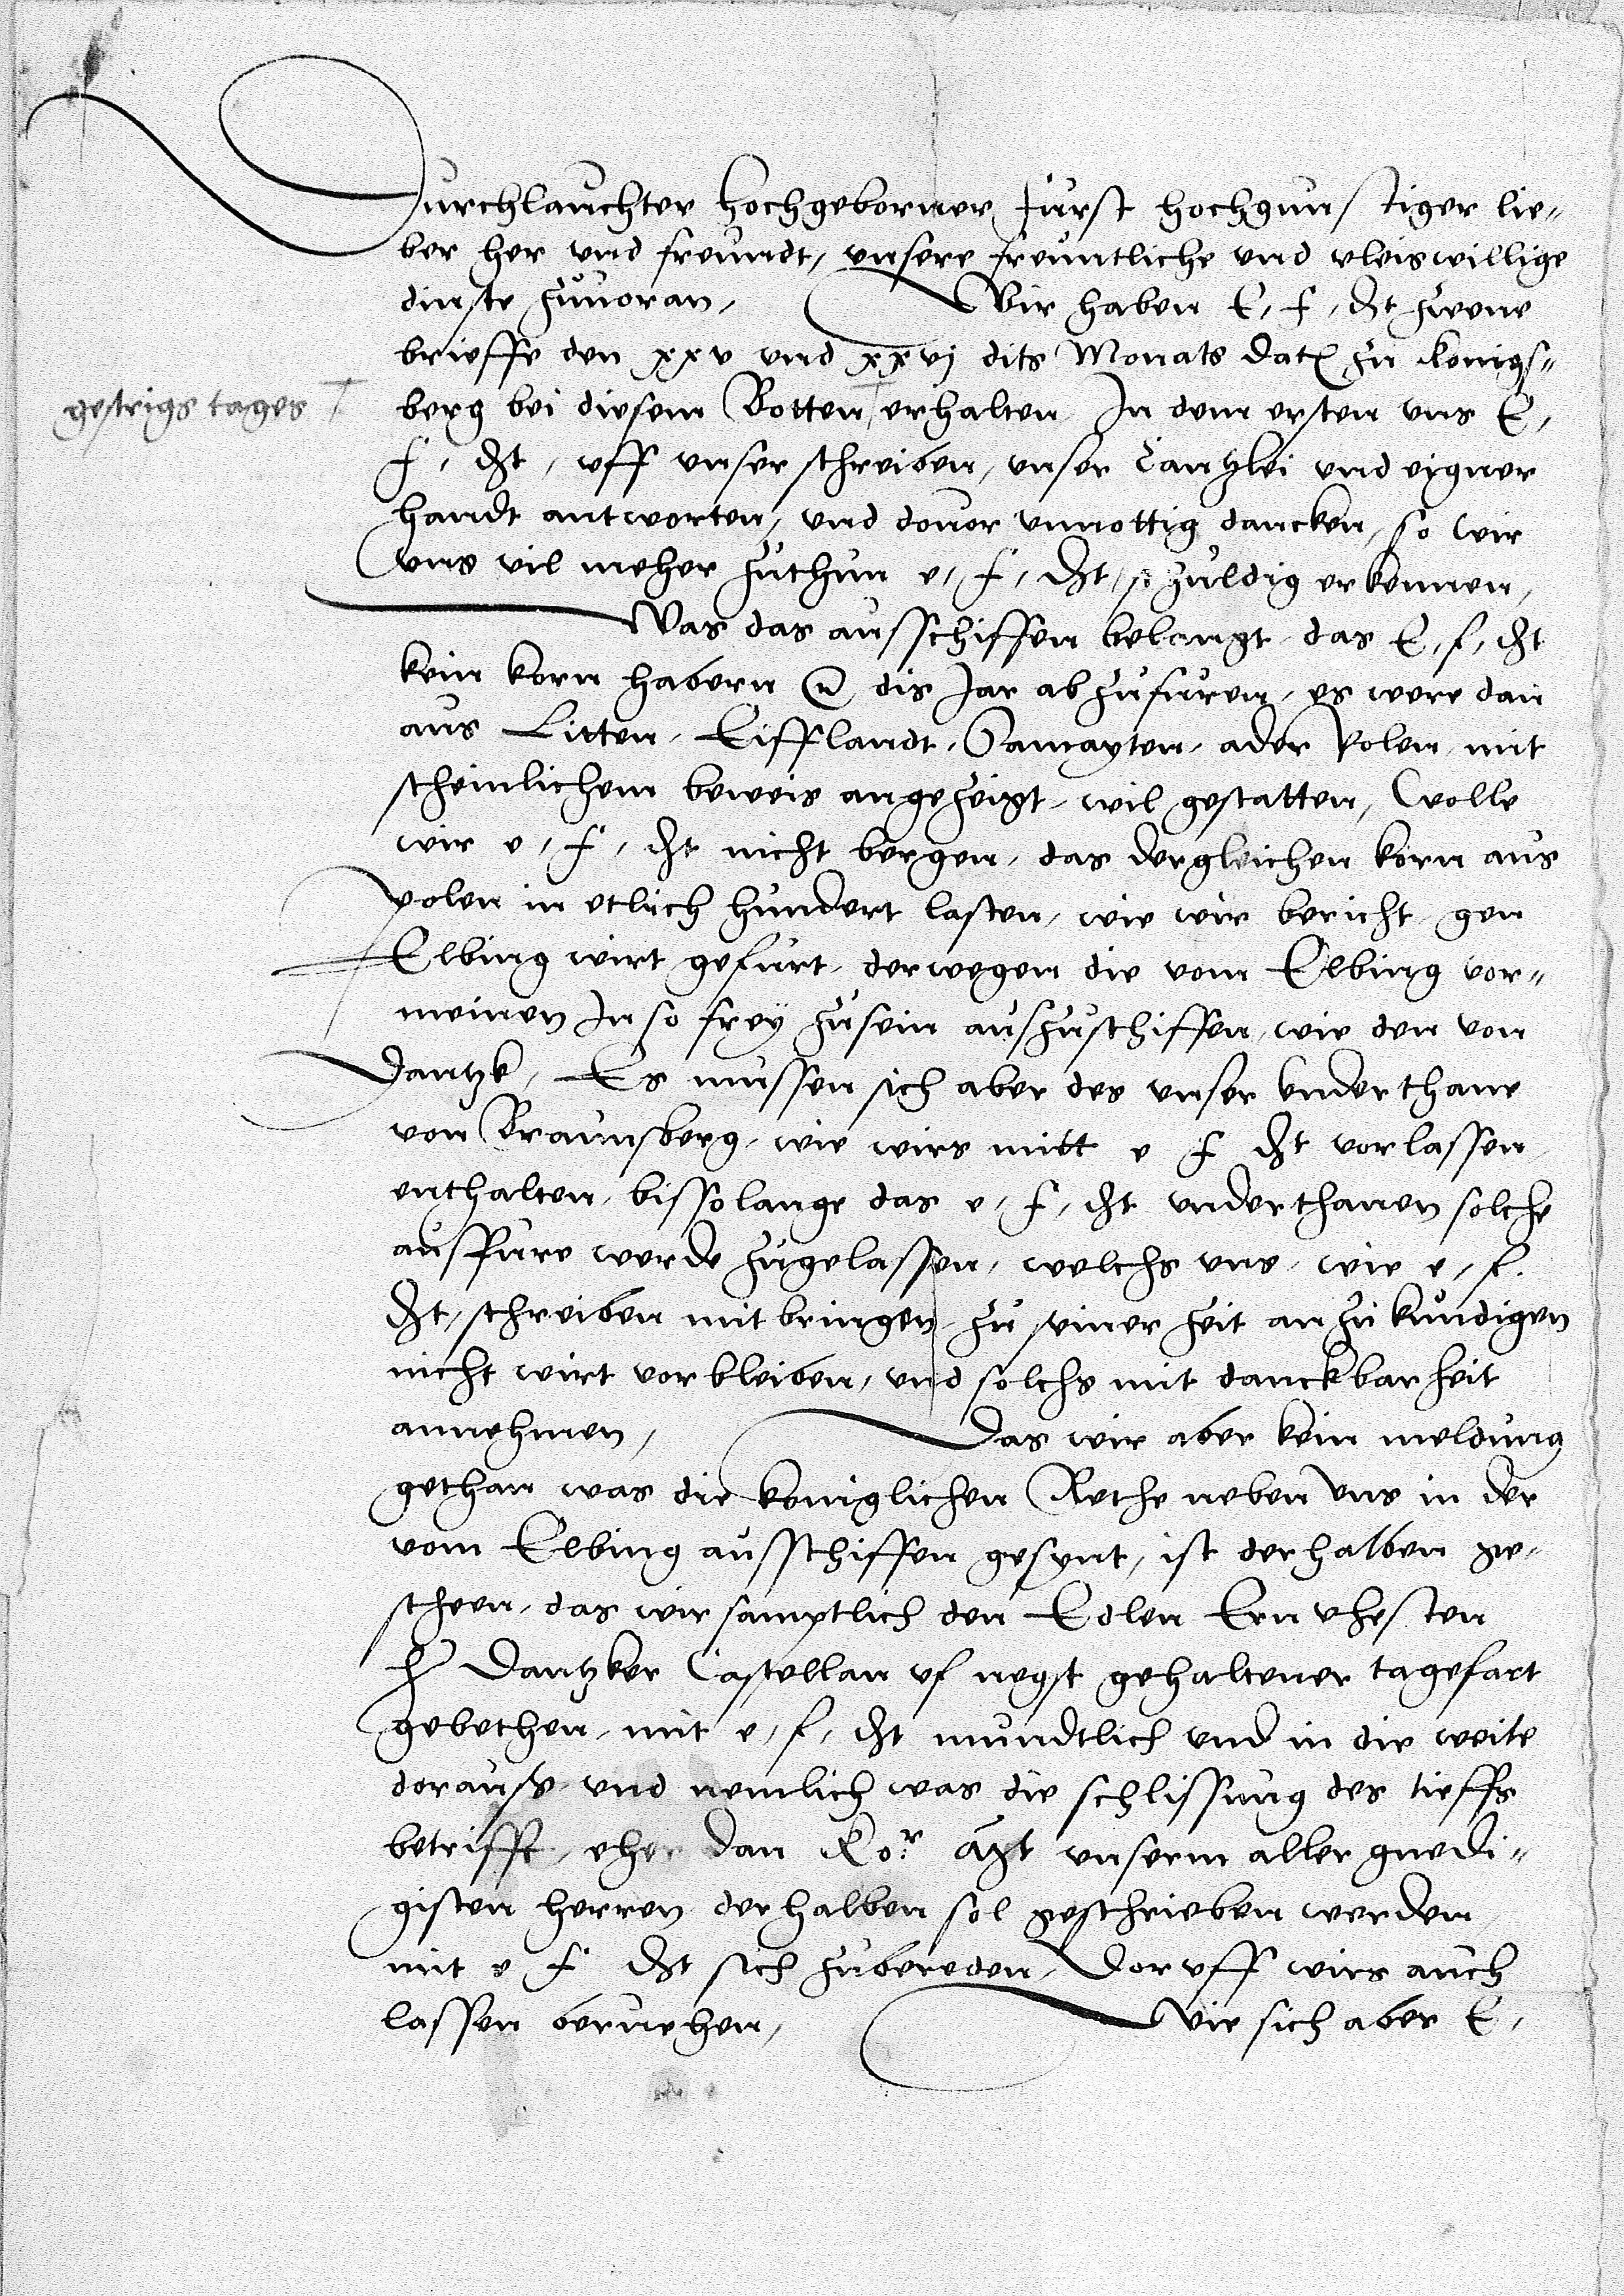 Durchlauchter hochgeborner Furst hochgunstiger lie-
ber her vnd freundt, vnsere freuntliche vnd vleiswillige
dinste zuuoran, Wir haben E, f, dht zwene
brieffe den xxv vnd xxvj dits Monats dat zu konigs-
gestrigs tages
berg bei diesem Botten erhalten In dem ersten vns E,
f, dht, vff vnser schreiben, vnser Cantzlei vnd eigner
handt antworten, vnd douor vnnottig dancken, so wir
vns vil meher zuthun e, f, dht, schuldig erkennen,
Was das ausschiffen belangt, das E, f, dht
kein korn habern dis Jar abzufuren, es were dan
aus Litten, Eifflandt, Samayten, ader Polen, mit
scheinlichem beweis angezeigt, wil gestatten, Wolle
wir e, f, dht nicht bergen, das dergleichen korn aus
polen in etlich hundert lasten, wie wir bericht, gen
Elbing wirt gefurt, derwegen die vom Elbing vor-
meinen In so frey zusein auszuschiffen, wie den von
Dantzk, Es mussen sich aber des vnser vnderthane
von Braunsberg, wie wirs mitt e f dht vorlassen,
enthalten, bissolange das e, f, dht vnderthanen solche
ausfure werde zugelassen, welchs vns, wie e, f.
dht, schreiben mitbringen, zu seiner zeit anzukundigen
nicht wirt vorbleiben, vnd solchs mit danckbarheit
annehmen, Das wir aber kein meldung
gethan was die koniglichen Rethe neben vns in der
vom Elbing ausschiffen gesynt, ist derhalben ge-
scheen, das wir samptlich den Edlen Ernvhesten
H Dantzker Castellan vf negst gehaltener tagefart
gebethen, mit e, f, dht mundtlich vnd in die weite
doraus, vnd nemlich was die schlissung des tieffs
betrifft, eher dan Ko.r Mt vnserm allergnedi-
gisten herren derhalben sol geschrieben werden,
mit e f dht sich zubereden, Doruff wirs auch
lassen beruhen, Wie sich aber E,